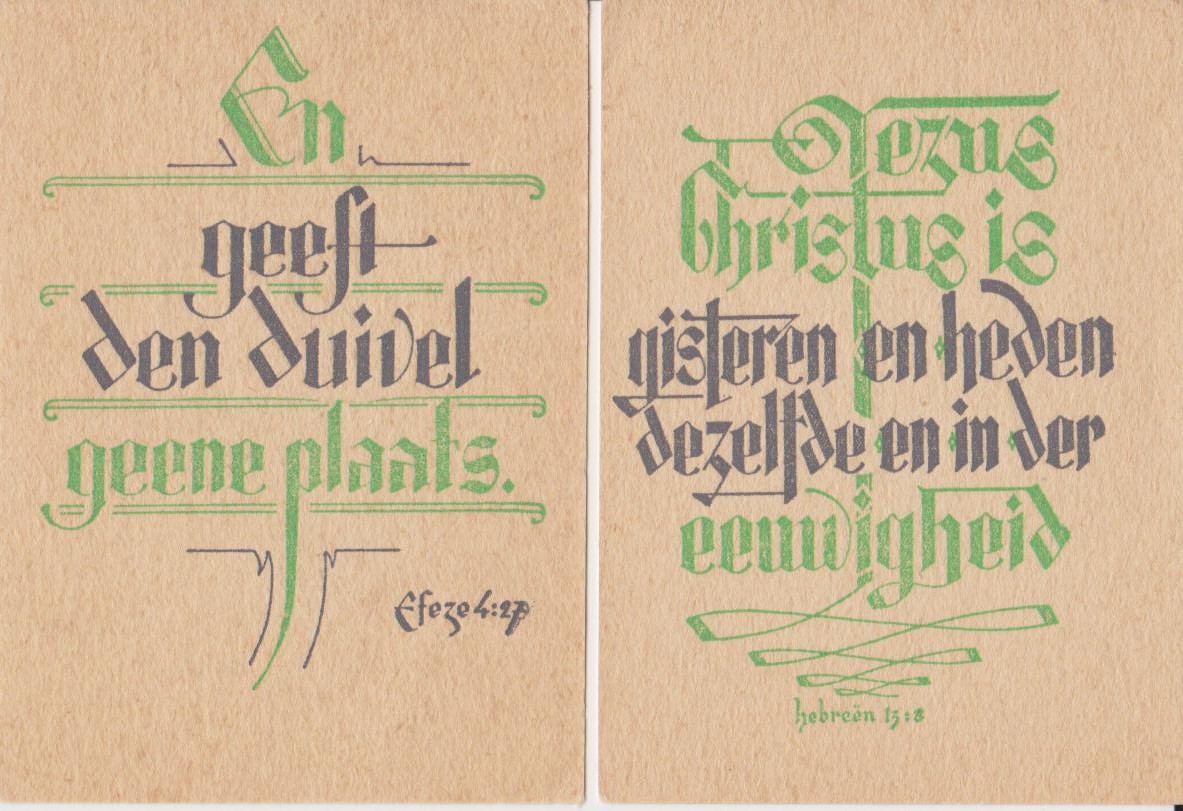 En
geeft
den duivel
geene plaats.
Efeze 4:27
Jezus
Christus is
gisteren en heden
dezelfde en in der
eeuwigheid
hebreën 13:8